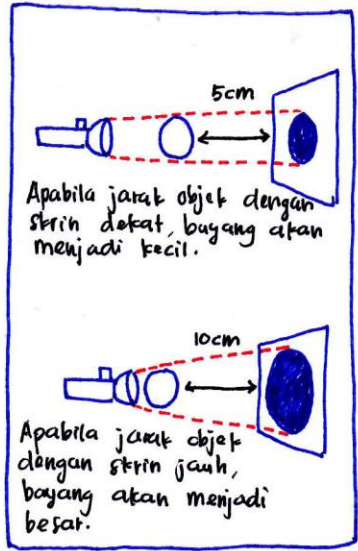 5cm
Apabila jarak objek dengan
skrin dekat, bayang akan
menjadi kecil.
10cm
Apabila jarak objek
dengan skrin jauh,
bayang akan menjadi
besar.